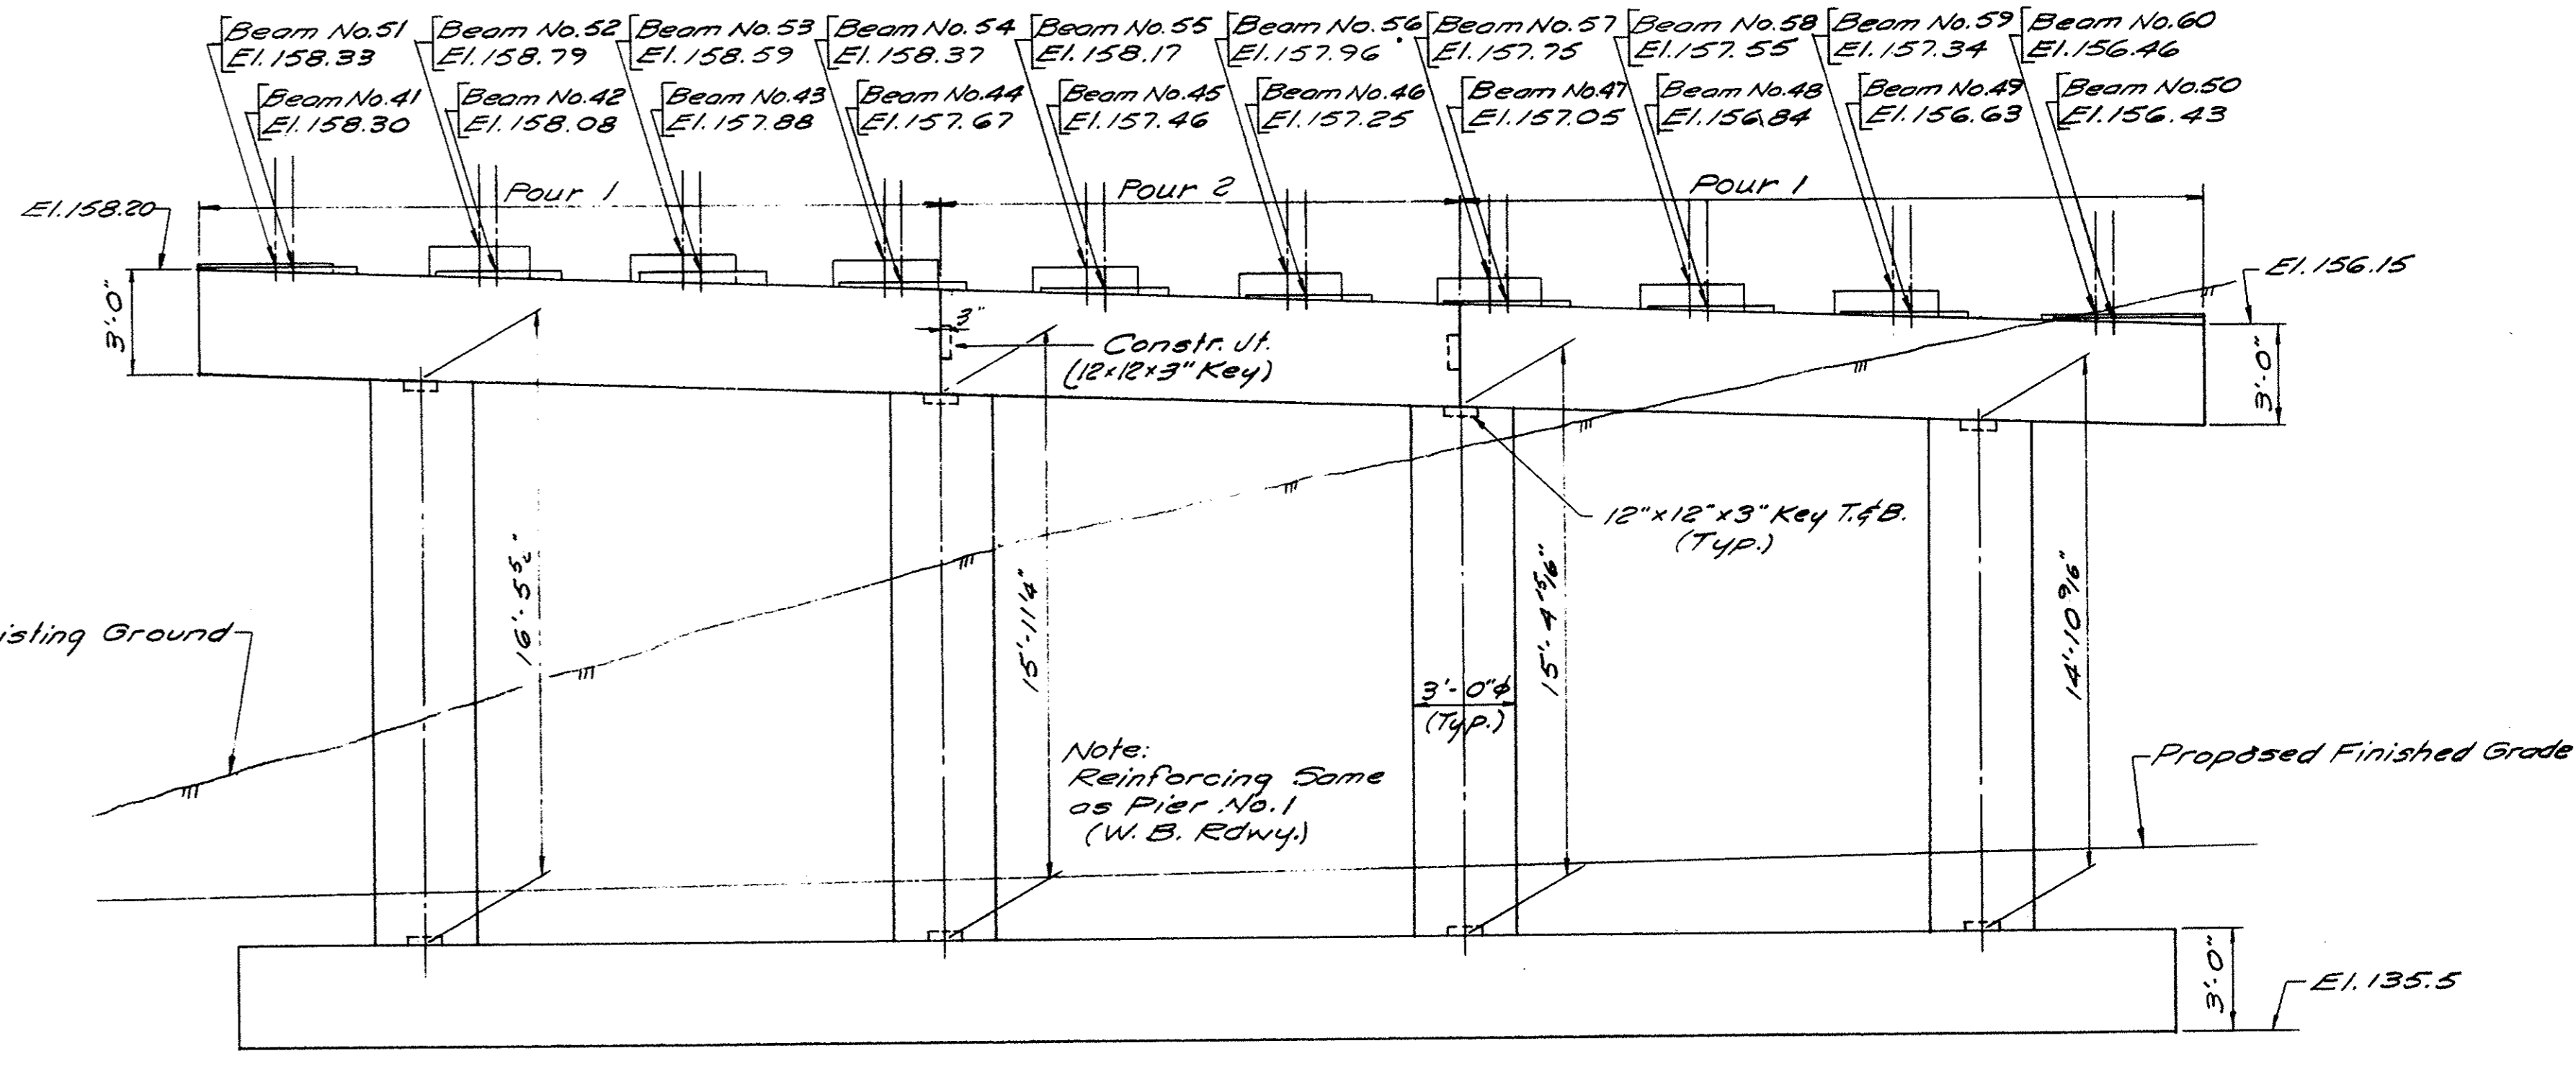 Beam No.51
El.158.33
Beam No.52
El.158.79
Beam No.53
El.158.59
Beam No.54
El.158.37
Beam No.55
El.158.17
Beam No.56
El.157.96
Beam No.57
El.157.75
Beam No.58
El.157.55
Beam No.59
El.157.34
Beam No.60
El.156.46
Beam No.41
El.158.30
Beam No.42
El.158.08
Beam No.43
El.157.88
Beam No.44
El.157.67
Beam No.45
El.157.46
Beam No.46
El.157.25
Beam No.47
El.157.05
Beam No.48
El.156.84
Beam No.49
El.156.63
Beam No.50
El.156.43
El.158.20
Pour 1
Pour 2
Pour 1
El.156.15
3'-0"
3"
Constr. Jt.
(12x12x3" Key)
3'-0"
12"x12"x3" Key T.&B.
(Typ.)
16'-5
15'-11¼"
15'-4 15/16"
14'-10 9/16"
isting Ground
3'-0"ϕ
(Typ.)
Note:
Reinforcing Same
as Pier No.1
(W.B. Rdwy.)
Proposed Finished Grade
3'-0"
El.135.5